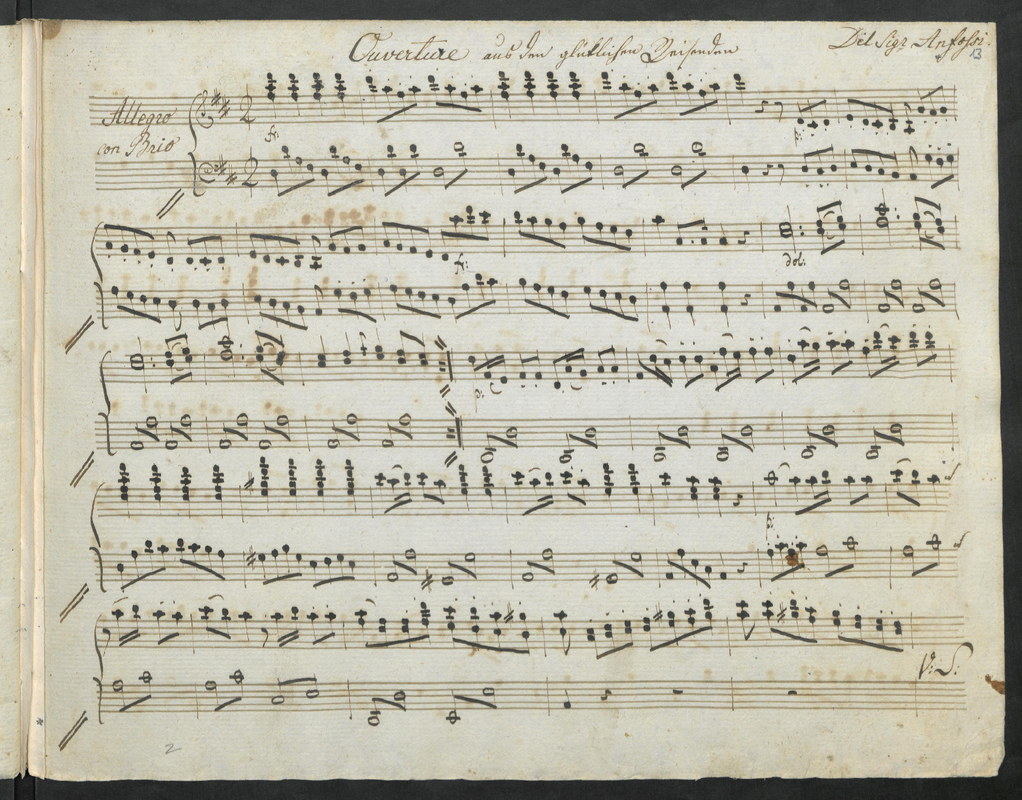 Ouverture aus den glüklichen Reisenden
Del Sigr Anfossi.
13
Allegro
con Brio
2
2
fr:
p:
fr:
dol:
p:
p:
V: S:
2